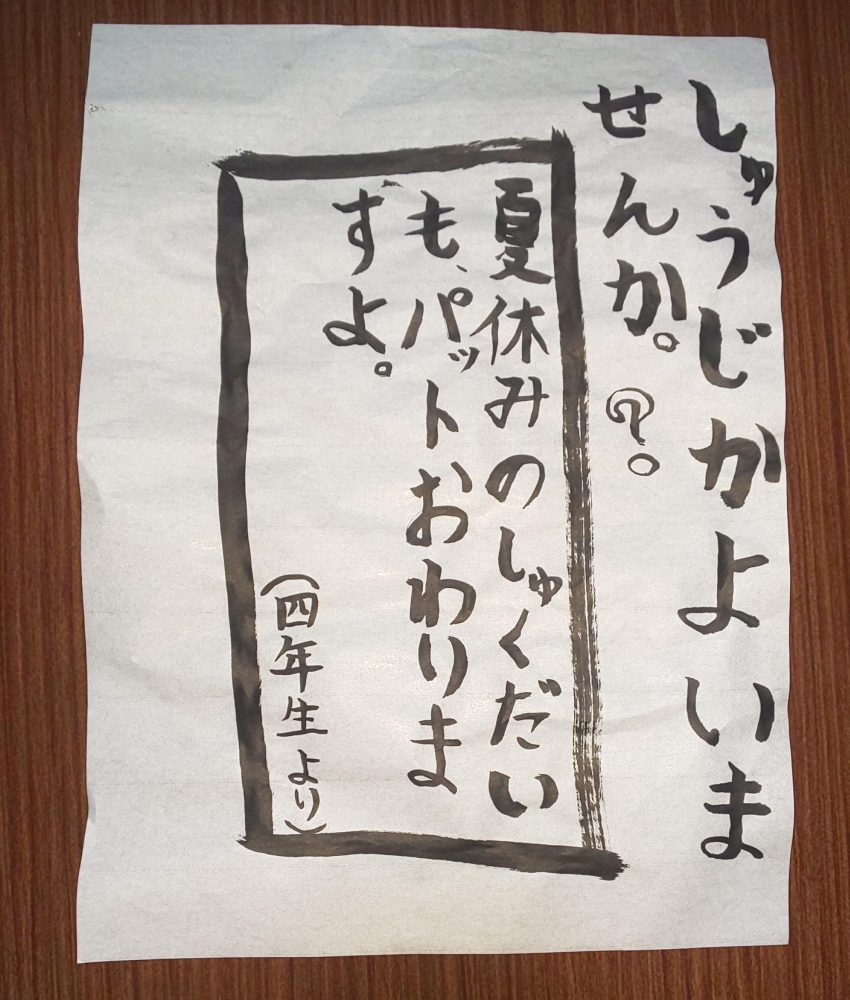 しゅうじかよいま
せんか。?。
夏休みのしゅくだい
も、パットおわりま
すよ。
(四年生より)